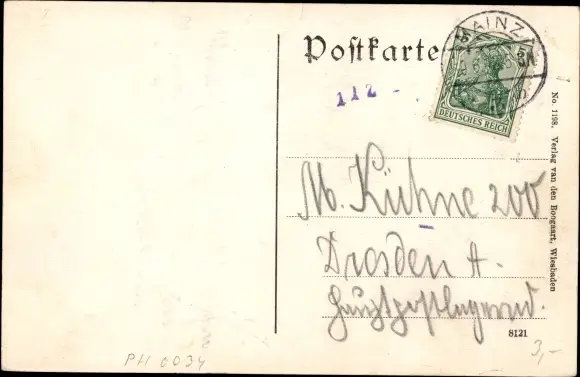 Postkarte
MAINZ
DEUTSCHES REICH
112 -
M. Kühne 200
Dresden A-
Hauptpostlagernd.
No. 1198. Verlag van den Bongaart, Wiesbaden
8121
3,-
PH 0034